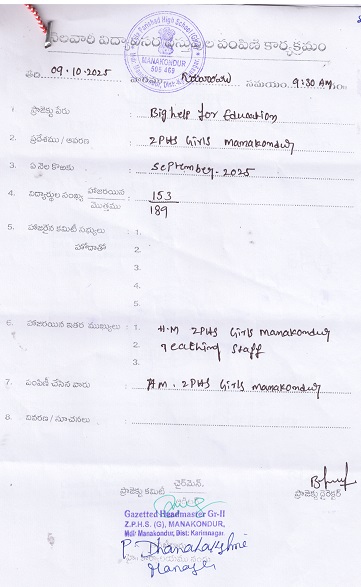 నెలవారి విద్యార్థినీ పంపిణీ కార్యక్రమం
Parishad High School
MANAKONDUR
505 469
తేది: 09.10.2025 సమయం: 9:30 AM
1. ప్రాజెక్టు పేరు : Big help for Education
2. ప్రదేశము / ఆవరణ : ZPHS Girls Manakondur
3. ఏ నెల కొఱకు : September-2025
4. విద్యార్థుల సంఖ్య హాజరయిన : 153
మొత్తము 189
5. హాజరైన కమిటీ సభ్యులు : 1.
హోదాతో 2.
3.
4.
5.
6. హాజరయిన ఇతర ముఖ్యులు : 1. H.M ZPHS Girls Manakondur
2. Teaching Staff
3.
7. పంపిణీ చేసిన వారు : H.M. ZPHS Girls Manakondur
8. వివరణ / సూచనలు :
చైర్‌మెన్.
ప్రాజెక్టు కమిటీ
ప్రాజెక్టు డైరెక్టర్
Gazetted Headmaster Gr-II
Z.P.H.S. (G), MANAKONDUR,
Mdl/ Manakondur, Dist: Karimnagar
P. Dhanalakshmi
Manager